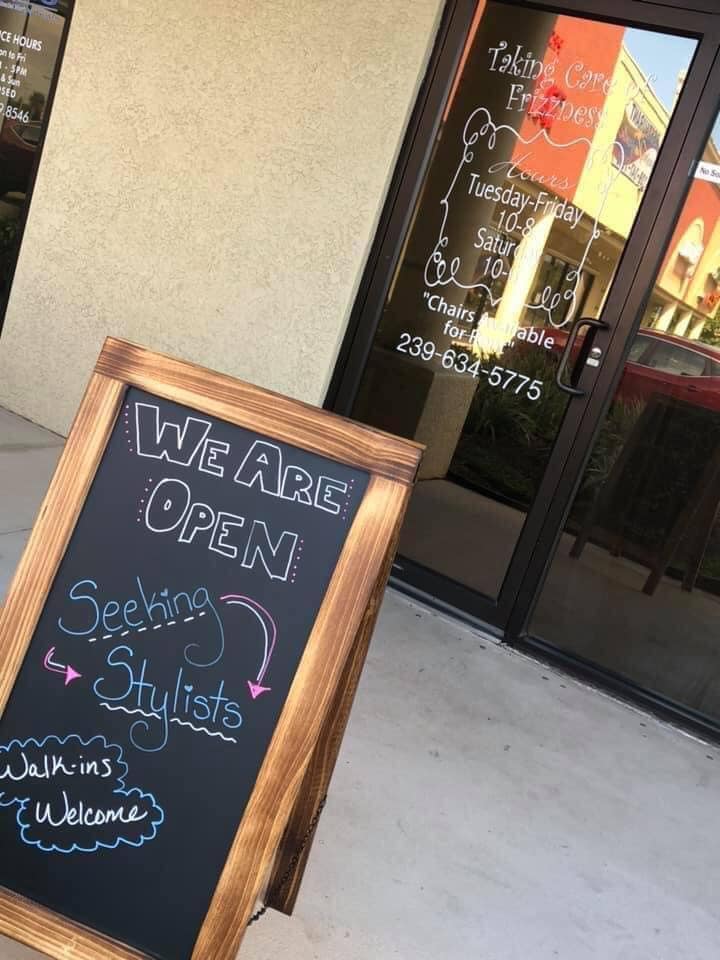 CE HOURS
on to Fri
- 5PM
& Sun
8546
Taking Care of
Frizzness
Hours
Tuesday-Friday
10-8
10-
"Chairs Available
239-634-5775
WE ARE
OPEN
Seeking
Stylists
Walk-ins
Welcome